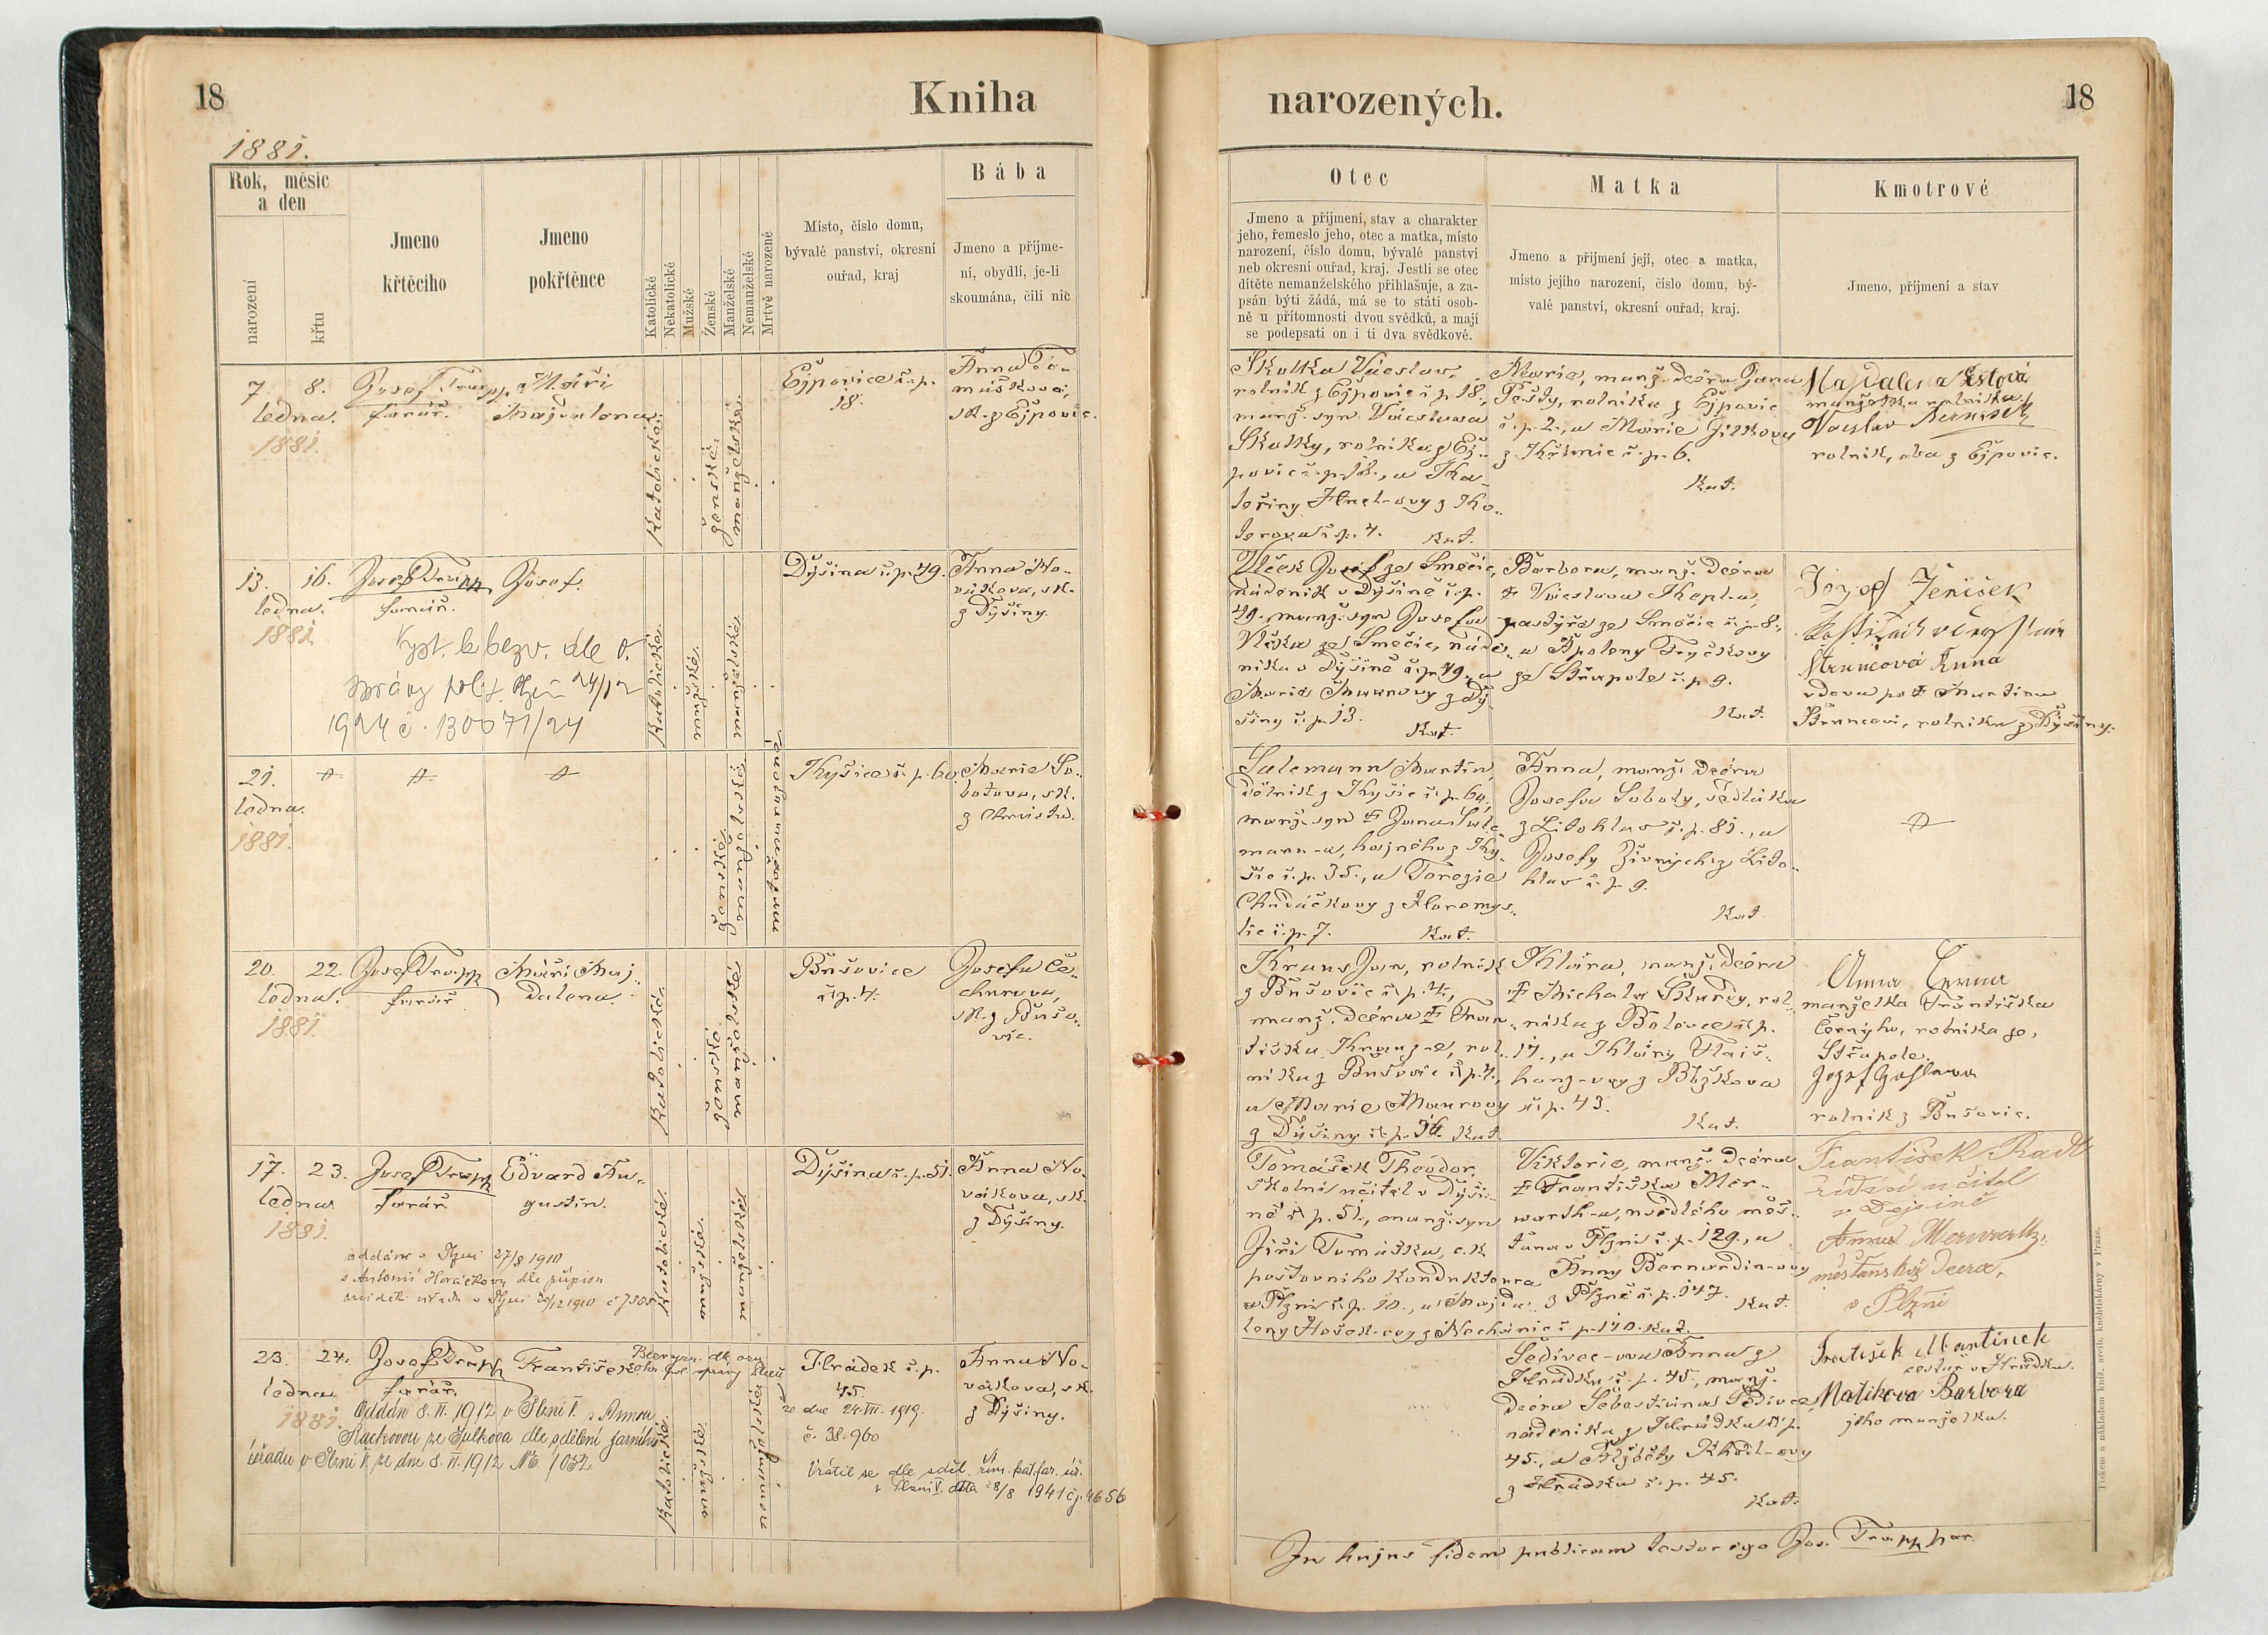 18
Kniha
1881.
Rok, měsíc
a den
narození
křtu
Jmeno
křtěcího
Jmeno
pokřtěnce
Katolické
Nekatolické
Mužské
Ženské
Manželské
Nemanželské
Mrtvě narozené
Místo, číslo domu,
bývalé panství, okresní
ouřad, kraj
Bába
Jmeno a příjme-
ní, obydlí, je-li
skoumána, čili nic
7. 8.
ledna.
1881.
Josef Trapp
farář.
Máří
Majdalena
Katolické.
ženské.
manželské.
Ejpovice č. p.
18.
Anna
sk. z Ejpovic.
13. 16.
ledna.
1881
Josef Trapp
farář.
Josef.
Vyst. b bezv. dle o.
správy polit. Plzeň 24/12
1924 č. 130071/24
Katolické.
mužské.
manželské.
Dýšina č. p. 49.
Anna No-
vákova, sk.
z Dýšiny.
21.
ledna.
1881.
ženské.
manželské.
mrtvě narozené
Kyšice č. p. 60.
Marie So-
botova, sk.
z Chrástu.
20. 22.
ledna.
1881.
Josef Trapp
farář
Máří Maj-
dalena.
Katolické.
ženské.
manželské.
Bušovice
č. p. 4.
Josefa Če-
churova,
sk. z Bušo-
vic.
17. 23.
ledna
1881.
Josef Trapp
farář
Edvard Au-
gustin.
oddán v Plzni 27/8 1910
s Antonií Horáčkovou dle přípisu
Katolické.
mužské.
manželské.
Dýšina č. p. 51.
Anna No-
vákova, sk.
z Dýšiny.
23. 24.
ledna
1881.
Josef Trapp
farář.
František
Oddán 8. VI. 1912 v Plzni V. s Annou
dle sdělení farního
úřadu v Plzni V. ze dne 8. VI. 1912 № 1032
Katolické.
mužské
nemanželské
Hrádek č. p.
45.
ze dne 24. VII. 1919.
č. 38.960
Vrátil se dle sděl. řím. kat. far. úř.
v Plzni V. dtto 28/8 1941 čj. 4656
Anna No-
vákova, sk.
z Dýšiny.
narozených.
18
Otec
Jmeno a příjmení, stav a charakter
jeho, řemeslo jeho, otec a matka, místo
narození, číslo domu, bývalé panství
neb okresní ouřad, kraj. Jestli se otec
dítěte nemanželského přihlašuje, a za-
psán býti žádá, má se to státi osob-
ně u přítomnosti dvou svědků, a mají
se podepsati on i ti dva svědkové.
Matka
Jmeno a přijmení její, otec a matka,
místo jejího narození, číslo domu, bý-
valé panství, okresní ouřad, kraj.
Kmotrové
Jmeno, příjmení a stav
Skolka Václav,
rolník z Ejpovic č. p. 18.,
manž. syn Václava
Skolky, rolníka z Ej-
povic č. p. 18., a Ka-
teřiny
z Ko-
terova č. p. 4. Kat.
Marie, manž. dcéra Jana
rolníka z Ejpovic
č. p. 2., a Marie Jílkovy
z Křimic č. p. 6.
Kat.
Majdalena
manželka rolníka.
Václav
rolník, oba z Ejpovic.
Vlček Josef ze Smědčic,
nádeník v Dýšině č. p.
49., manž. syn Josefa
Vlčka ze Smědčic, náde-
níka v Dýšině č. p. 49., a
Marie
z Dý-
šiny č. p. 13.
Kat.
Barbora, manž. dcéra
Václava
pastýře ze Smědčic č. p. 8.,
a Apoleny
ze Střapole č. p. 9.
Kat.
Jozef Jeníšek
Štruncová Anna
vdova po Martinu
Štruncovi, rolníku z Dýšiny.
Salcmann Martin,
dělník z Kyšic č. p. 60.,
manž. syn Jana Salc-
mann-a, hajného z Ky-
šic č. p. 35., a Terezie
Chudáčkovy z Horomys-
lic č. p. 7. Kat.
Anna, manž. dcéra
Josefa Soboty, sedláka
z Litohlav č. p. 81., a
Josefy
z Lito-
hlav č. p. 9.
Kat.
Kraus Jan, rolník
z Bušovic č. p. 4.,
manž. František
rol-
níka z Bušovic č. p. 4.,
a Marie Maurovy
z Dýšiny č. p. 36. Kat.
Klára, manž. dcéra
Michala Škardy, rol-
níka z Bolevce č. p.
17., a Kláry
č. p. 43.
Kat.
Anna Černa
manželka Františka
Černýho, rolníka ze
Střapole.
rolník z Bušovic.
Tomášek Theodor,
školní učitel v Dýši-
ně č. p. 51., manž. syn
Jiří Tomáška, c. k.
poštovního konduktoura
v Plzni č. p. 10., a Majda-
leny Hošek-ovy z Nechanic č. p. 140. Kat.
Viktorie, manž. dcéra
Františka Mer-
warth-a, usedlého měš-
ťana v Plzni č. p. 129., a
Anny Bernardin-ovy
z Plzně č. p. 147. Kat.
František Radl
řídící učitel
v Dejšině
Anna Merwarth,
městanská dcera,
v Plzni
Šedivec-ova Anna z
Hrádku č. p. 45., manž.
dcéra Šebestiána Šedivce,
nádeníka z Hrádku č. p.
45., a Alžběty
z Hrádku č. p. 45.
Kat.
Frantíšek Martínek
cestář v Hrádku.
Barbora
jeho manželka.
In hujus fidem publicam testor ego Jos. Trapp par.
Tiskem a nákladem kníž. arcib. knihtiskárny v Praze.